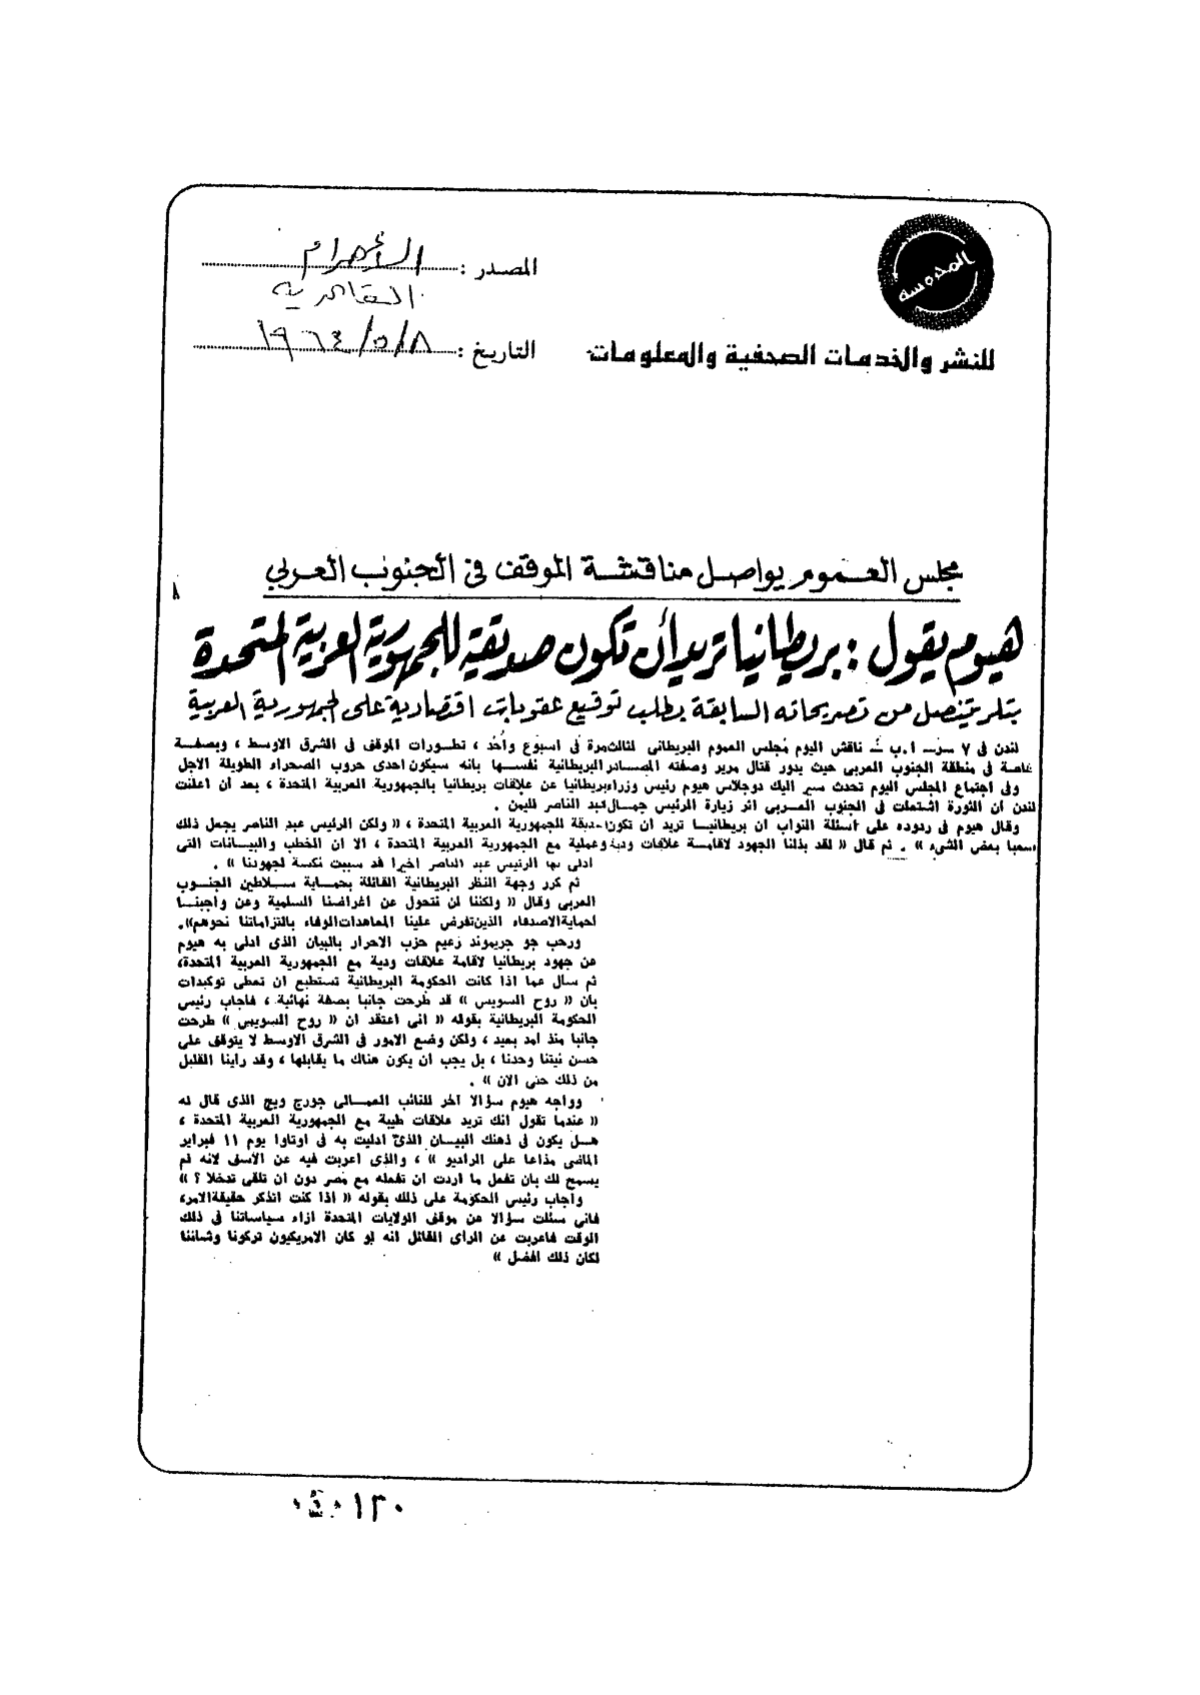 المصدر : الأهرام
القاهرية
التاريخ : ١٩٦٤/٥/٨
المدوسة
للنشر والخدمات الصحفية والمعلومات
مجلس العموم يواصل مناقشة الموقف فى الجنوب العربي
هيوم يقول : بريطانيا تريد أن تكون صديقة للجمهورية العربية المتحدة
بتلر يتنصل من تصريحاته السابقة بطلب توقيع عقوبات اقتصادية على الجمهورية العربية
لندن فى ٧ ــ ا.ب ــ ناقش اليوم مجلس العموم البريطانى لثالث مرة فى اسبوع واحد ، تطورات الموقف فى الشرق الاوسط ، وبصفة
خاصة فى منطقة الجنوب العربى حيث يدور قتال مرير وصفته المصادر البريطانية نفسها بانه سيكون احدى حروب الصحراء الطويلة الاجل
وفى اجتماع المجلس اليوم تحدث سير اليك دوجلاس هيوم رئيس وزراء بريطانيا عن علاقات بريطانيا بالجمهورية العربية المتحدة ، بعد ان اعلنت
لندن ان الثورة اشتعلت فى الجنوب العربى اثر زيارة الرئيس جمال عبد الناصر لليمن .
وقال هيوم فى ردوده على اسئلة النواب ان بريطانيا تريد ان تكون صديقة للجمهورية العربية المتحدة ، « ولكن الرئيس عبد الناصر يجعل ذلك
صعبا بعض الشىء » . ثم قال « لقد بذلنا الجهود لاقامة علاقات ودية وعملية مع الجمهورية العربية المتحدة ، الا ان الخطب والبيانات التى
ادلى بها الرئيس عبد الناصر اخيرا قد سببت نكسة لجهودنا » .
ثم كرر وجهة النظر البريطانية القائلة بحماية سلاطين الجنوب
العربى وقال « ولكننا لن نتحول عن اغراضنا السلمية وعن واجبنا
لحماية الاصدقاء الذين تفرض علينا المعاهدات الوفاء بالتزاماتنا نحوهم».
ورحب جو جريموند زعيم حزب الاحرار بالبيان الذى ادلى به هيوم
عن جهود بريطانيا لاقامة علاقات ودية مع الجمهورية العربية المتحدة،
ثم سال عما اذا كانت الحكومة البريطانية تستطيع ان تعطى توكيدات
بان « روح السويس » قد طرحت جانبا بصفة نهائية ، فاجاب رئيس
الحكومة البريطانية بقوله « انى اعتقد ان « روح السويس » طرحت
جانبا منذ امد بعيد ، ولكن وضع الامور فى الشرق الاوسط لا يتوقف على
حسن نيتنا وحدنا ، بل يجب ان يكون هناك ما يقابلها ، وقد راينا القليل
من ذلك حتى الان » .
وواجه هيوم سؤالا اخر للنائب العمالى جورج ويج الذى قال له
« عندما تقول انك تريد علاقات طيبة مع الجمهورية العربية المتحدة ،
هل يكون فى ذهنك البيان الذى ادليت به فى اوتاوا يوم ١١ فبراير
الماضى مذاعا على الراديو » ، والذى اعربت فيه عن الاسف لانه لم
يسمح لك بان تفعل ما اردت ان تفعله مع مصر دون ان تلقى تدخلا ؟ »
واجاب رئيس الحكومة على ذلك بقوله « اذا كنت اتذكر حقيقة الامر،
فانى سئلت سؤالا عن موقف الولايات المتحدة ازاء سياساتنا فى ذلك
الوقت فاعربت عن الراى القائل انه لو كان الامريكيون تركونا وشاننا
لكان ذلك افضل »